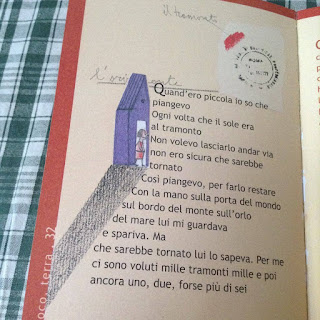 il tramonto
Quand'ero piccola io so che
piangevo
Ogni volta che il sole era
al tramonto
Non volevo lasciarlo andar via
non ero sicura che sarebbe
tornato
Così piangevo, per farlo restare
Con la mano sulla porta del mondo
sul bordo del monte sull'orlo
del mare lui mi guardava
e spariva. Ma
che sarebbe tornato lui lo sapeva. Per me
ci sono voluti mille tramonti mille e poi
ancora uno, due, forse più di sei
oco_terra_32